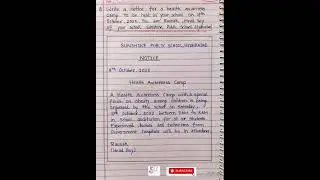 Write a notice for a health awareness
camp to be held in your school on 11th
October, 2025. You are Rausik, Head Boy
of your school, Sunshine Public School, Hyderabad
SUNSHINE PUBLIC SCHOOL, HYDERABAD
NOTICE
8th October, 2025
Health Awareness Camp
A Health Awareness Camp with a special
focus on obesity among children is being
organised by this school on Saturday,
11th October, 2025 between 9am to 2pm
in school auditorium for all our students.
Experienced doctors and technicians from
Government hospitals will be in attendance
(Head Boy)
SUBSCRIBE